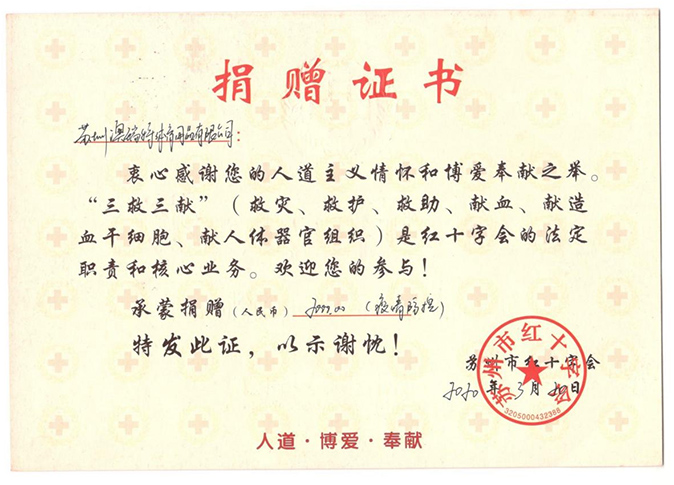 捐赠证书
苏州澳瑞特体育用品有限公司:
衷心感谢您的人道主义情怀和博爱奉献之举。
“三救三献”(救灾、救护、救助、献血、献造
血干细胞、献人体器官组织)是红十字会的法定
职责和核心业务。欢迎您的参与!
承蒙捐赠(人民币) (疫情防控)
特发此证,以示谢忱!
苏州市红十字会
2020年3月20日
苏州市红十字会
3205000432386
人道·博爱·奉献